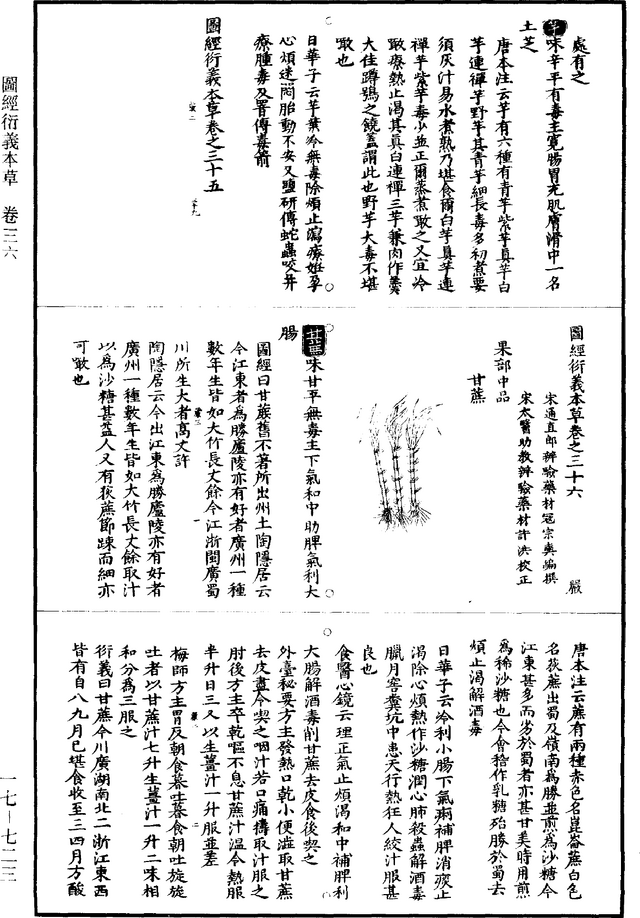 圖經衍義本草　卷三六
處有之
芋味辛平有毒主寬腸胃充肌膚滑中一名
土芝
唐本注云芋有六種有青芋紫芋真芋白
芋連禪芋野芋其青芋細長毒多初煮要
須灰汁易水煮熟乃堪食爾白芋真芋連
禪芋紫芋毒少並正爾蒸煮噉之又宜冷
噉療熱止渴其真白連禪三芋兼肉作羹
大佳蹲鴟之饒蓋謂此也野芋大毒不堪
噉也
日華子云芋葉冷無毒除煩止瀉療姙孕
心煩迷悶胎動不安又鹽研傅蛇蟲咬并
療腫毒及署傅毒箭
圖經衍義本草卷之三十五
圖經衍義本草卷之三十六
宋通直郎辨驗藥材寇宗奭編撰
宋太醫助教辨驗藥材許洪校正
果部中品
甘蔗
甘蔗味甘平無毒主下氣和中助脾氣利大
腸
圖經曰甘蔗舊不著所出州土陶隱居云
今江東者為勝廬陵亦有好者廣州一種
數年生皆如大竹長丈餘今江浙閩廣蜀
川所生大者高丈許
陶隱居云今出江東為勝廬陵亦有好者
廣州一種數年生皆如大竹長丈餘取汁
以為沙糖甚益人又有荻蔗節踈而細亦
可噉也
唐本注云蔗有兩種赤色名崑崙蔗白色
名荻蔗出蜀及嶺南為勝並煎為沙糖今
江東甚多而劣於蜀者亦甚甘美時用煎
為稀沙糖也今會稽作乳糖殆勝於蜀去
煩止渴解酒毒
日華子云冷利小腸下氣痢補脾消痰止
渴除心煩熱作沙糖潤心肺殺蟲解酒毒
臘月窖糞坑中患天行熱狂人絞汁服甚
良也
食醫心鏡云理正氣止煩渴和中補脾利
大腸解酒毒削甘蔗去皮食後喫之
外臺秘要方主發熱口乾小便澁取甘蔗
去皮盡令喫之咽汁若口痛擣取汁服之
肘後方主卒乾嘔不息甘蔗汁溫令熱服
半升日三又以生薑汁一升服並差
梅師方主胃反朝食暮吐暮食朝吐旋旋
吐者以甘蔗汁七升生薑汁一升二味相
和分為三服之
衍義曰甘蔗今川廣湖南北二浙江東西
皆有自八九月已堪食收至三四月方酸
一七—七二三